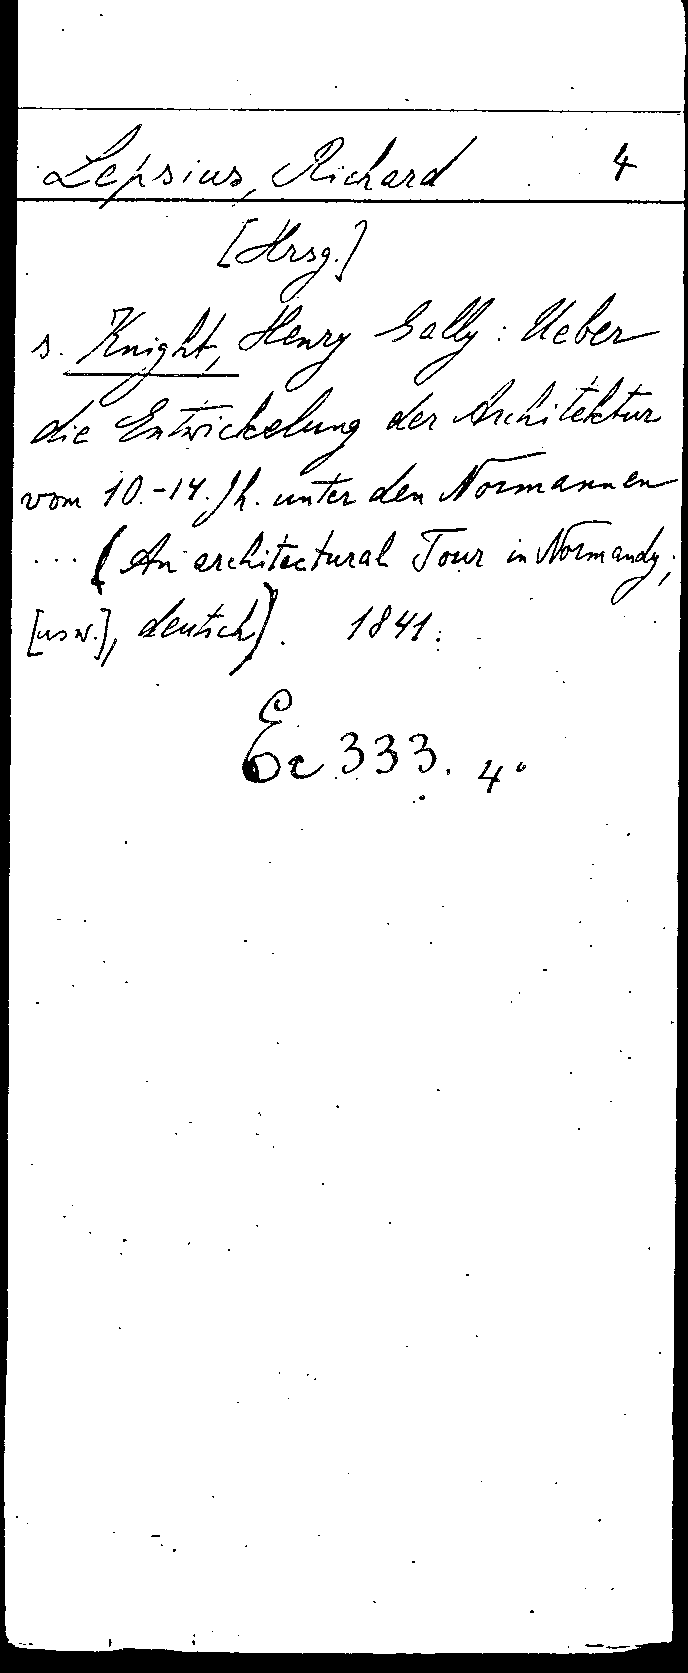 Lepsius, Richard 4
[Hrsg.]
s. Knight, Henry Gally: Ueber
die Entwickelung der Architektur
vom 10.-14. Jh. unter den Normannen
... (An architectural Tour in Normandy,
[usw.], deutsch). 1841.
Ec 333. 4°